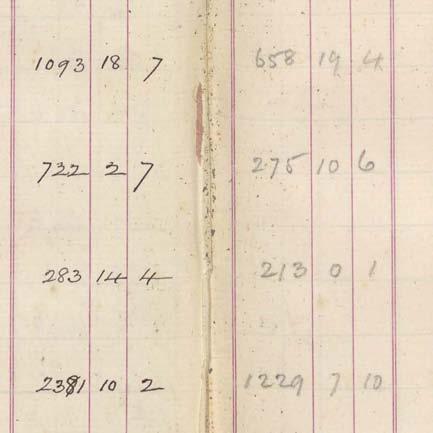 1093 18 7
722 2 7
283 14 4
2381 10 2
658 19 4
275 10 6
213 0 1
1229 7 10